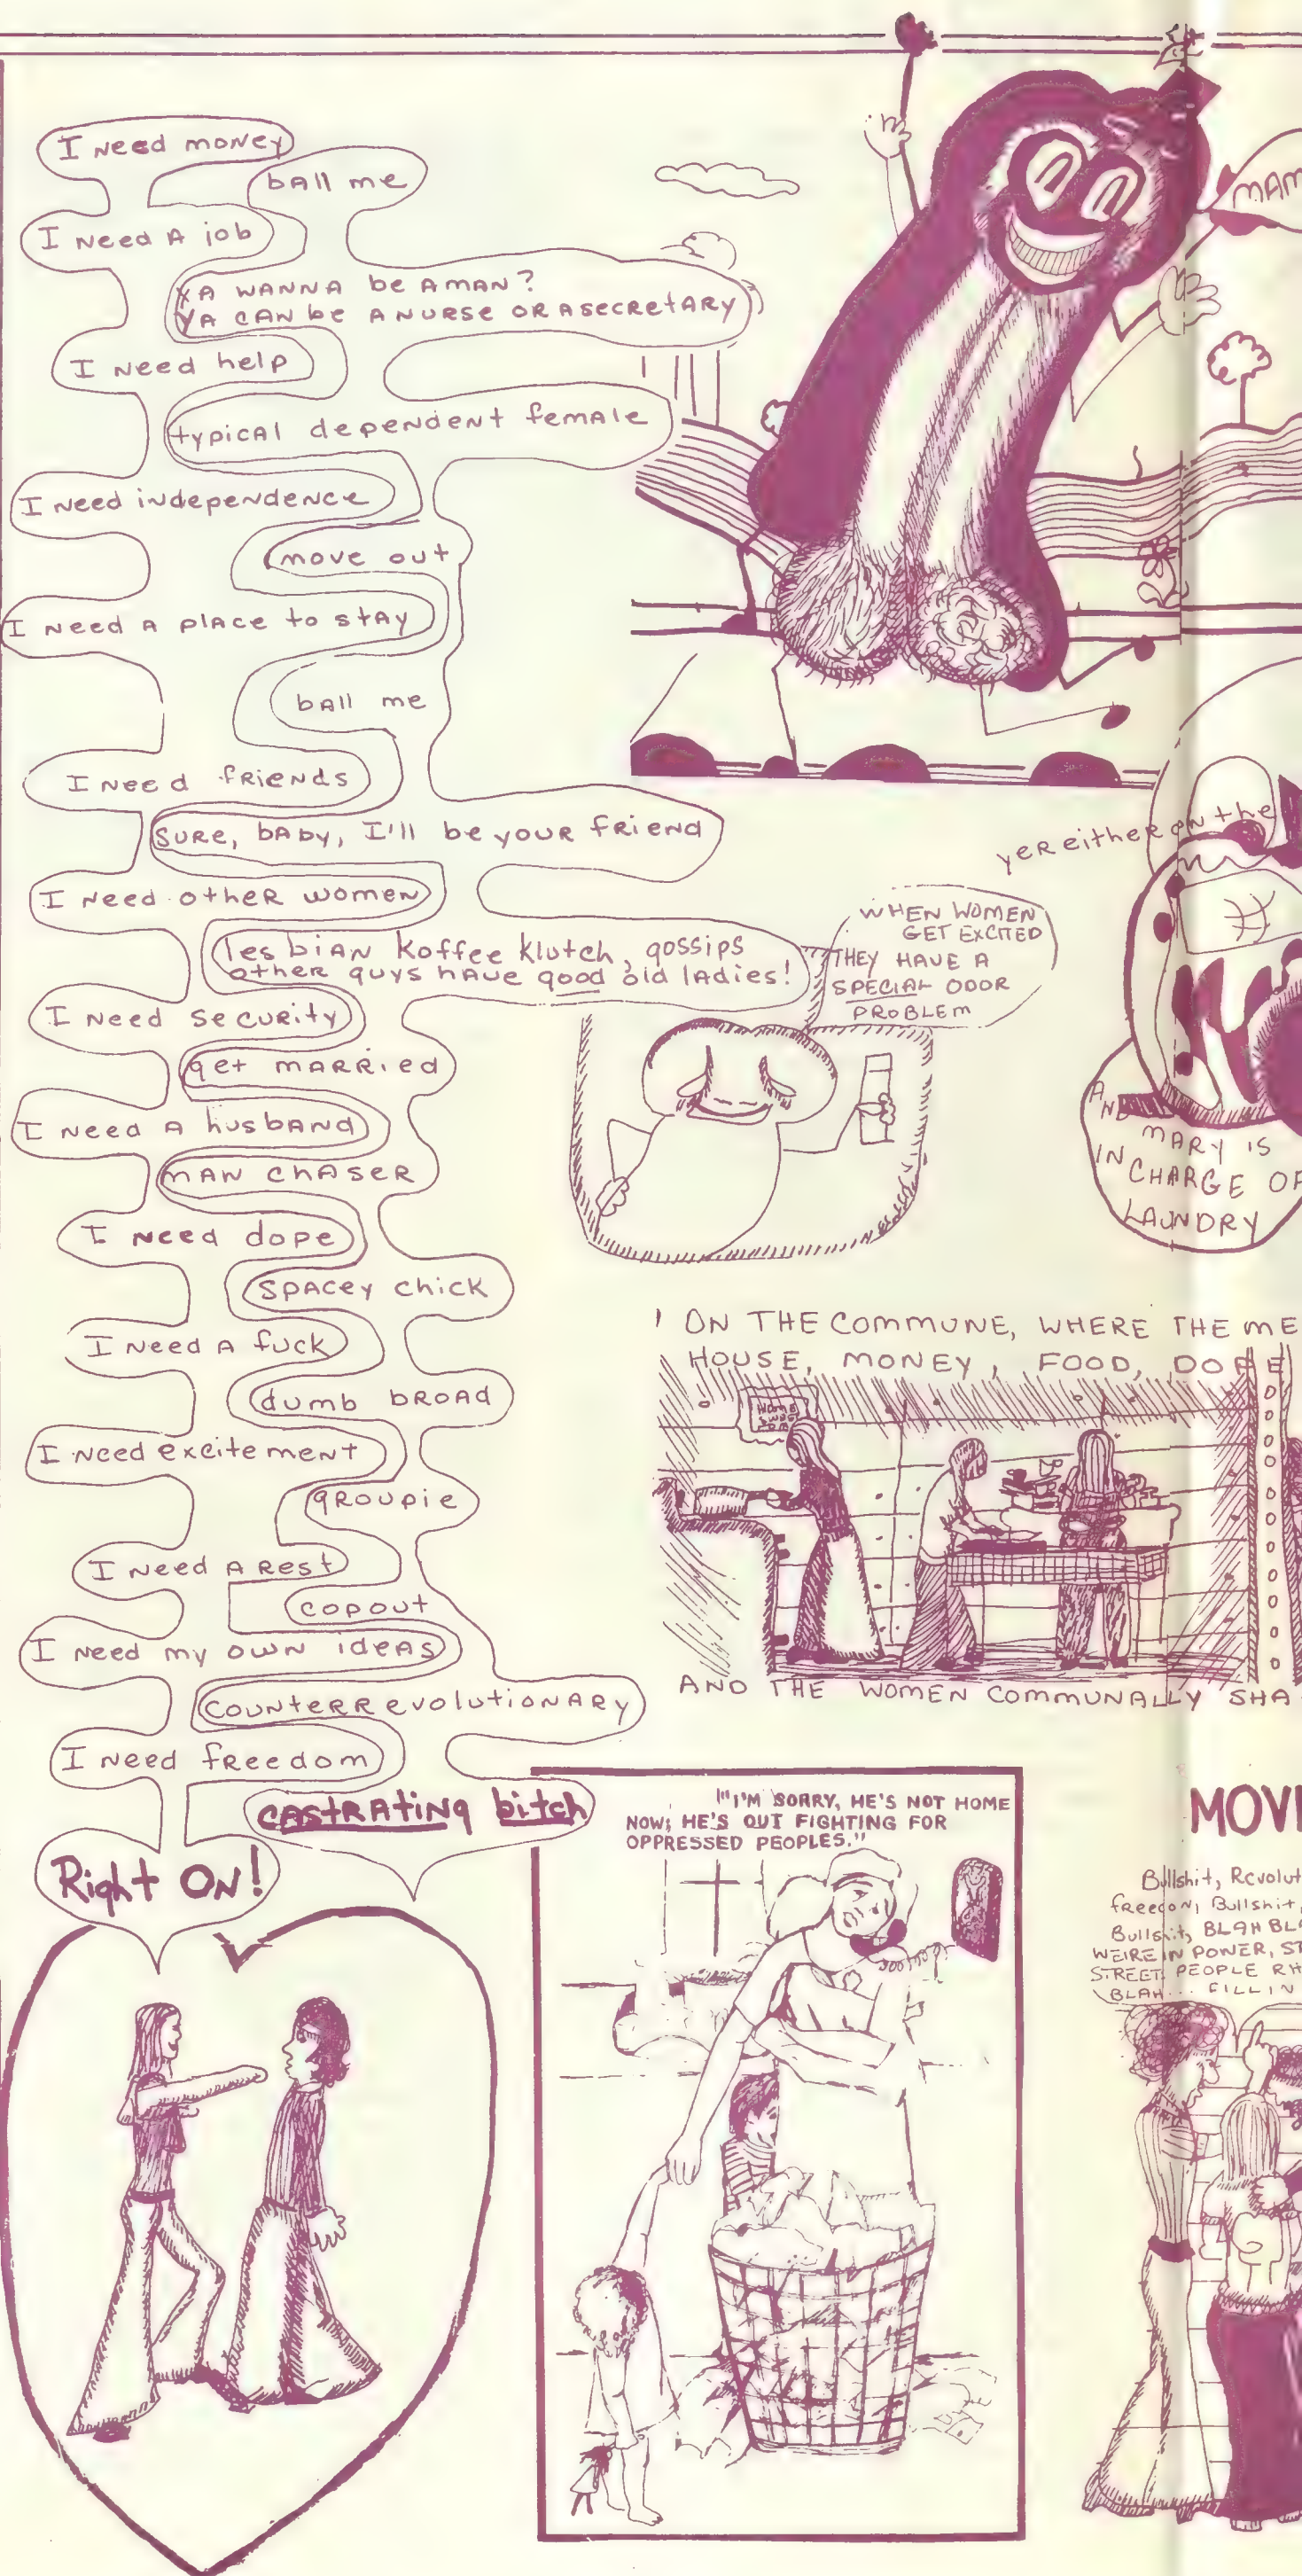 I Need money
ball me
I Need A job
YA WANNA be A MAN?
YA CAN be A NURSE OR A SECRETARY
I Need help
typical dependent female
I Need independence
move out
I Need A place to stay
ball me
I Need friends
SURE, baby, I'll be your friend
I Need other women
lesbian koffee klutch, gossips
other guys have good old ladies!
I Need security
get MARRied
I Need A husband
MAN chaser
I Need dope
spacey chick
I Need A fuck
dumb broad
I Need excitement
groupie
I Need A Rest
copout
I Need my own ideas
counterrevolutionary
I Need freedom
castrating bitch
Right ON!
MAM
yer either on the
WHEN WOMEN
GET EXCITED
THEY HAVE A
SPECIAL ODOR
PROBLEM
AND
MARY IS
IN CHARGE OF
LAUNDRY
ON THE COMMUNE, WHERE THE ME
HOUSE, MONEY, FOOD, DOPE
Home
Sweet
AND THE WOMEN COMMUNALLY SHA
"I'M SORRY, HE'S NOT HOME
NOW; HE'S OUT FIGHTING FOR
OPPRESSED PEOPLES."
MOVI
Bullshit, Revolut
freedon, Bullshit,
Bullshit, BLAH BLA
WEIRE IN POWER, ST
STREET PEOPLE RH
BLAH... FILL IN